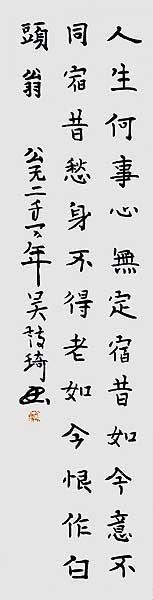 人生何事心無定宿昔如今意不
同宿昔愁身不得老如今恨作白
頭翁
公元二千〇八年吳詩琦書